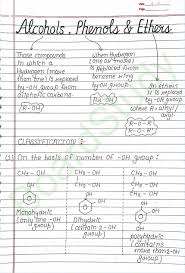 Alcohols, Phenols & Ethers
Those compounds
in which a
Hydrogen (more
than one) is
replaced
by -OH group from
aliphatic carbons-
R-OH
when Hydrogen
(one or more)
is replaced from
benzene ring
by -OH group.
Ar-OH
when -H
is replaced
by -OR group
R-O-R
R-O-R'
CLASSIFICATION :-
(1) On the basis of number of -OH group:
CH3 - OH
CH2 - OH
CH2 - OH
CH2 - OH
CH - OH
CH2 - OH
OH
OH
OH
Monohydric
(only one -OH
group)
Dihydric
(contain 2 -OH
group)
polyhydric
(contains
more than 2 -OH
group)